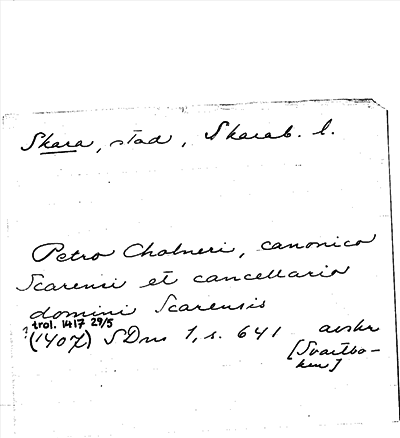 Skara, stad, Skarab. l.
Petro Cholneri, canonico
Scarensi et cancellario
domini Scarensis
? trol. 1417 29/5
(1407) SDns 1, s. 641 avskr
[Svartbo-
ken]